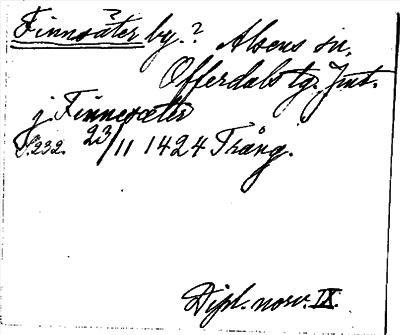 Finnsäter by? Alsens sn,
Offerdals tg. Jmt.
j Finnesæter
S. 232. 23/11 1424 Trång.
Dipl. norv. IX.